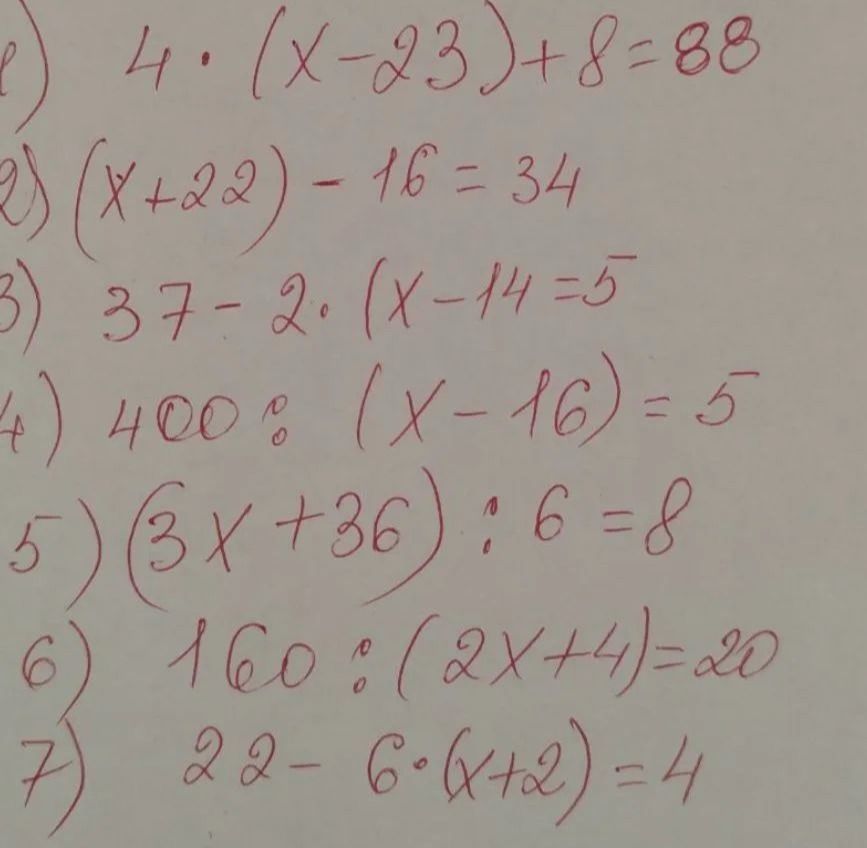 1) 4 · (x-23)+8=88
2) (x+22) - 16 = 34
3) 37 - 2 · (x-14=5
4) 400 : (x - 16) = 5
5) (3x + 36) : 6 = 8
6) 160 : (2x+4)=20
7) 22 - 6·(x+2) = 4